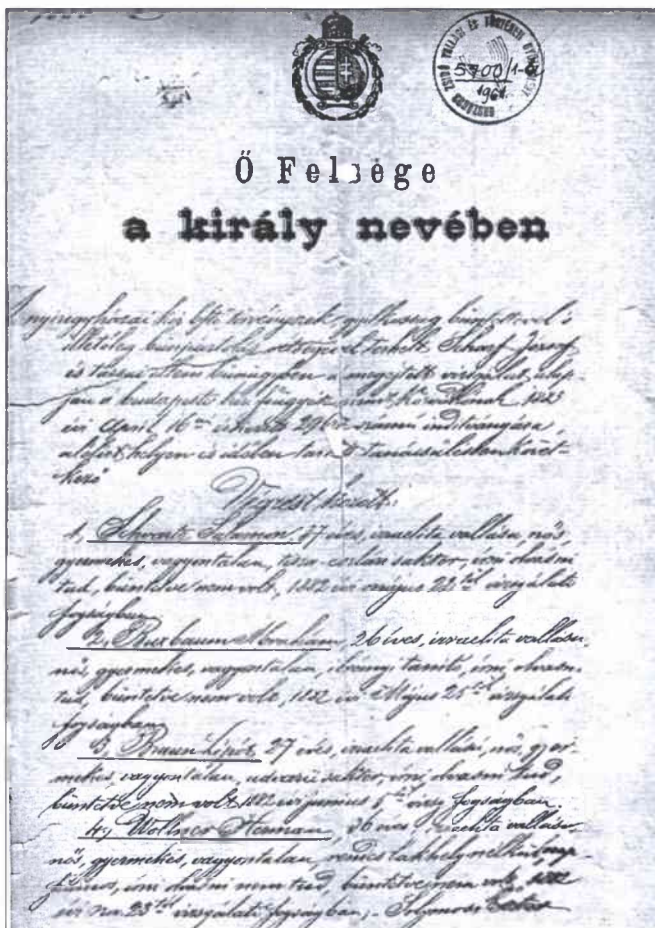 ORSZÁGOS ZSIDÓ VALLÁSI ÉS TÖRTÉNETI GYŰJTEMÉNY
5700/1-
1961.
Ő Felsége
a király nevében
A nyiregyházai kir. tvszék gyilkosság büntettével s
illetőleg bünpártolás vétségével terhelt Scharf József
és társai elleni bünügyben a megejtett vizsgálat alap-
ján a budapesti kir. főügyész 1883
évi April 16án 2962 számu inditványára,
alólirt helyen és időben tartott tanácsülésben követ-
kező
Végzést hozott:
1, Schwarcz Salamon 37 éves, izraelita vallásu, nős,
gyermekes, vagyontalan, tisza-eszlári sakter, irni olvasni
tud, büntetve nem volt, 1882 évi május 22től vizsgálati
fogságban
2, Buxbaum Abraham, 26 éves, izraelita vallásu,
nős, gyermekes, vagyontalan, tanitó, irni olvasni
tud, büntetve nem volt, 1882 évi Május 25től vizsgálati
fogságban
3, Braun Lipót 27 éves, izraelita vallásu, nős, gyer-
mekes, vagyontalan, sakter, irni olvasni tud,
büntetve nem volt 1882 évi junius 5től vizsg. fogságban.
4, Wollner Herman, 36 éves, izraelita vallásu,
nős, gyermekes, vagyontalan, rendes lakhely nélküli,
irni olvasni nem tud, büntetve nem volt, 1882
évi 23től vizsgálati fogságban, - Solymosi Eszter